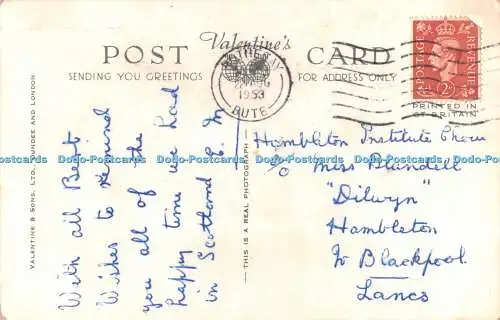 Valentine's
POST CARD
SENDING YOU GREETINGS
FOR ADDRESS ONLY
1953
BUTE
POSTAGE
REVENUE
2D
PRINTED IN
GT BRITAIN
VALENTINE & SONS, LTD., DUNDEE AND LONDON
With all Best
Wishes to remind
you all of the
happy time we had
in Scotland E. M
THIS IS A REAL PHOTOGRAPH
Hambleton Institute Choir
c/o Miss Blundell
"Dilwyn"
Hambleton
Nr Blackpool
Lancs
Dodo-Postcards Dodo-Postcards Dodo-Postcards Dodo-Postcards Dodo-Postcards